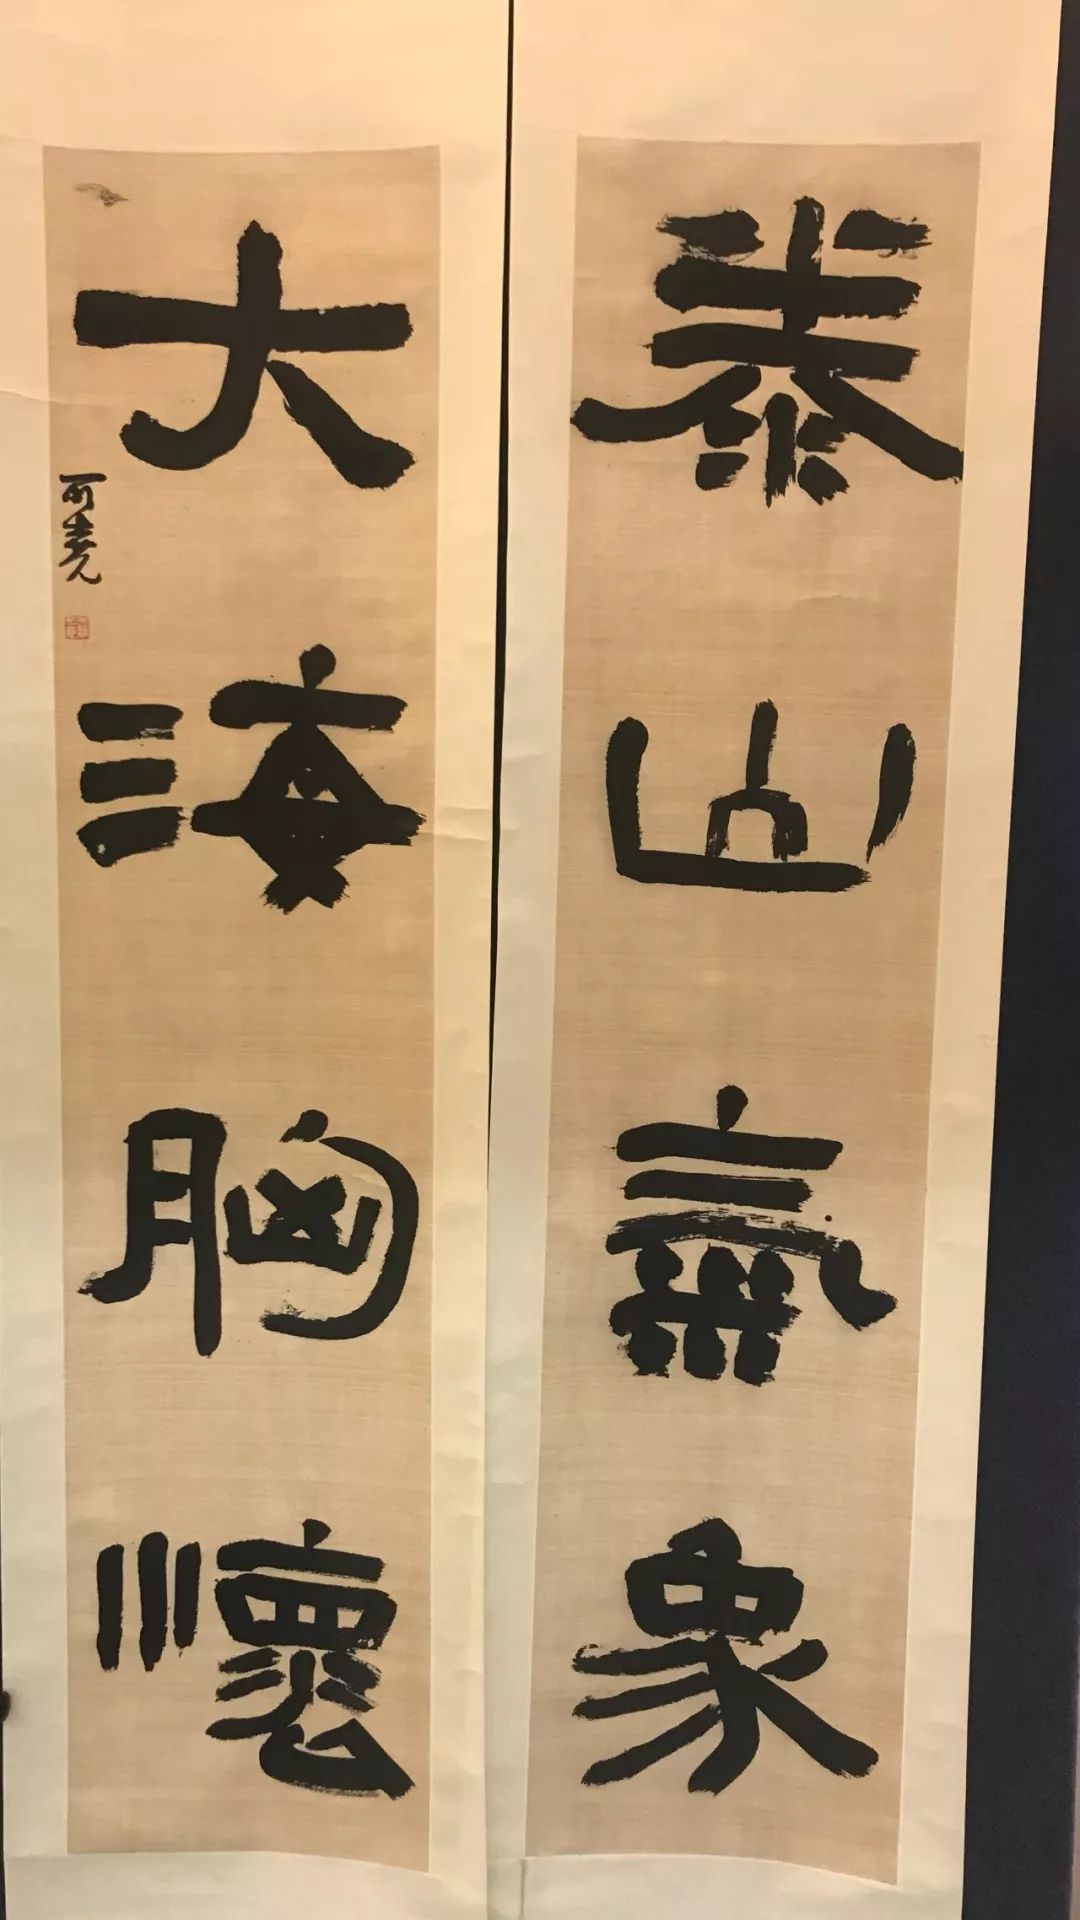 泰山氣象
大海胸懷
可堯